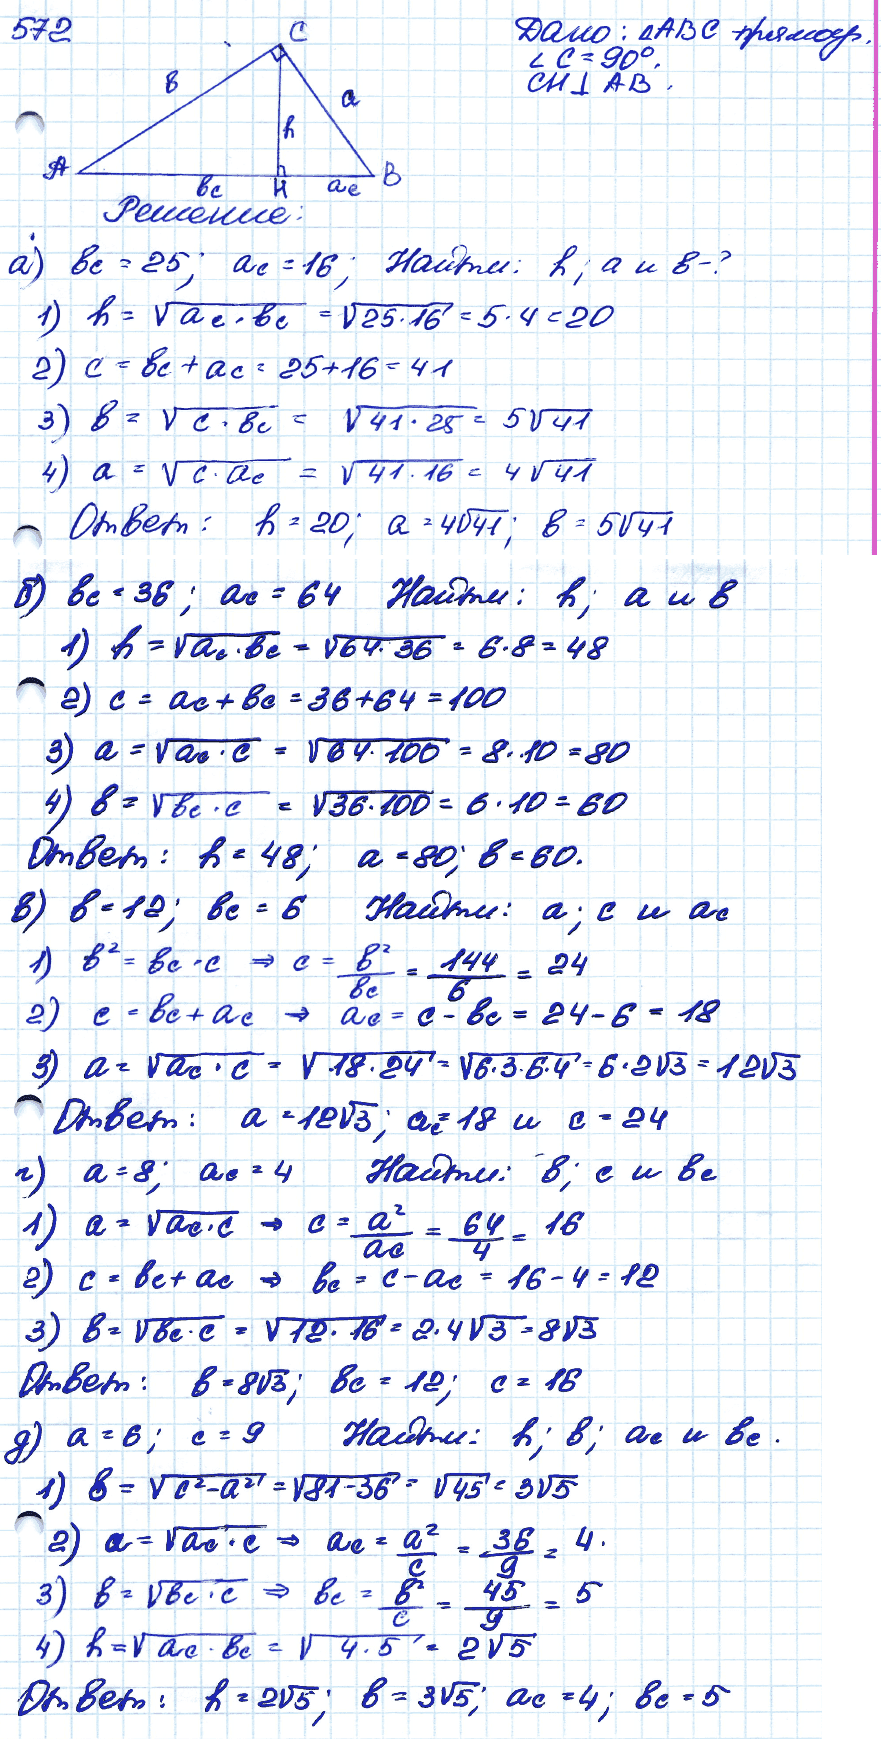 572
Дано: △ABC прямоуг.
∠ C = 90°.
CH ⊥ AB.
C
в
a
h
A
B
вc
H
ac
Решение:
а) вc = 25; ac = 16; Найти: h; a и в-?
1) h = √(ac · вc) = √(25·16) = 5·4 = 20
2) c = вc + ac = 25+16 = 41
3) в = √(c · вc) = √(41·25) = 5√41
4) a = √(c · ac) = √(41·16) = 4√41
Ответ: h = 20; a = 4√41; в = 5√41
б) вc = 36; ac = 64 Найти: h; a и в
1) h = √(ac · вc) = √(64·36) = 6·8 = 48
2) c = ac + вc = 36+64 = 100
3) a = √(ac · c) = √(64·100) = 8·10 = 80
4) в = √(вc · c) = √(36·100) = 6·10 = 60
Ответ: h = 48; a = 80; в = 60.
в) в = 12; вc = 6 Найти: a; c и ac
1) в² = вc · c ⇒ c = в²/вc = 144/6 = 24
2) c = вc + ac → ac = c - вc = 24 - 6 = 18
3) a = √(ac · c) = √(18·24) = √(6·3·6·4) = 6·2√3 = 12√3
Ответ: a = 12√3; ac = 18 и c = 24
г) a = 8; ac = 4 Найти: в; c и вc
1) a = √(ac · c) → c = a²/ac = 64/4 = 16
2) c = вc + ac → вc = c - ac = 16 - 4 = 12
3) в = √(вc · c) = √(12·16) = 2·4√3 = 8√3
Ответ: в = 8√3; вc = 12; c = 16
д) a = 6; c = 9 Найти: h; в; ac и вc.
1) в = √(c² - a²) = √(81-36) = √45 = 3√5
2) a = √(ac · c) ⇒ ac = a²/c = 36/9 = 4.
3) в = √(вc · c) ⇒ вc = в²/c = 45/9 = 5
4) h = √(ac · вc) = √(4·5) = 2√5
Ответ: h = 2√5; в = 3√5; ac = 4; вc = 5